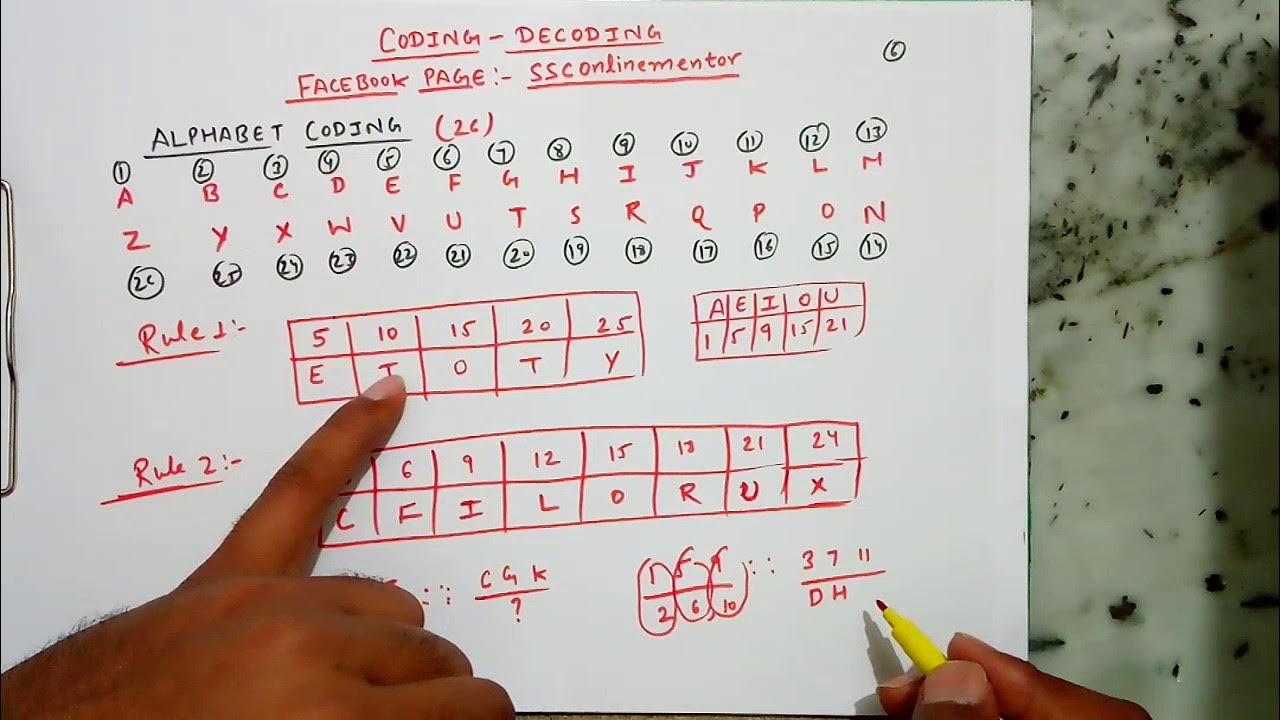 CODING - DECODING
FACEBOOK PAGE:- SSConlinementor
6
ALPHABET CODING (26)
1 2 3 4 5 6 7 8 9 10 11 12 13
A B C D E F G H I J K L M
Z Y X W V U T S R Q P O N
26 25 24 23 22 21 20 19 18 17 16 15 14
Rule 1:-
5 10 15 20 25
E J O T Y
A E I O U
1 5 9 15 21
Rule 2:-
6 9 12 15 18 21 24
C F I L O R U X
:: C G K
?
1 5 9 :: 3 7 11
2 6 10 D H